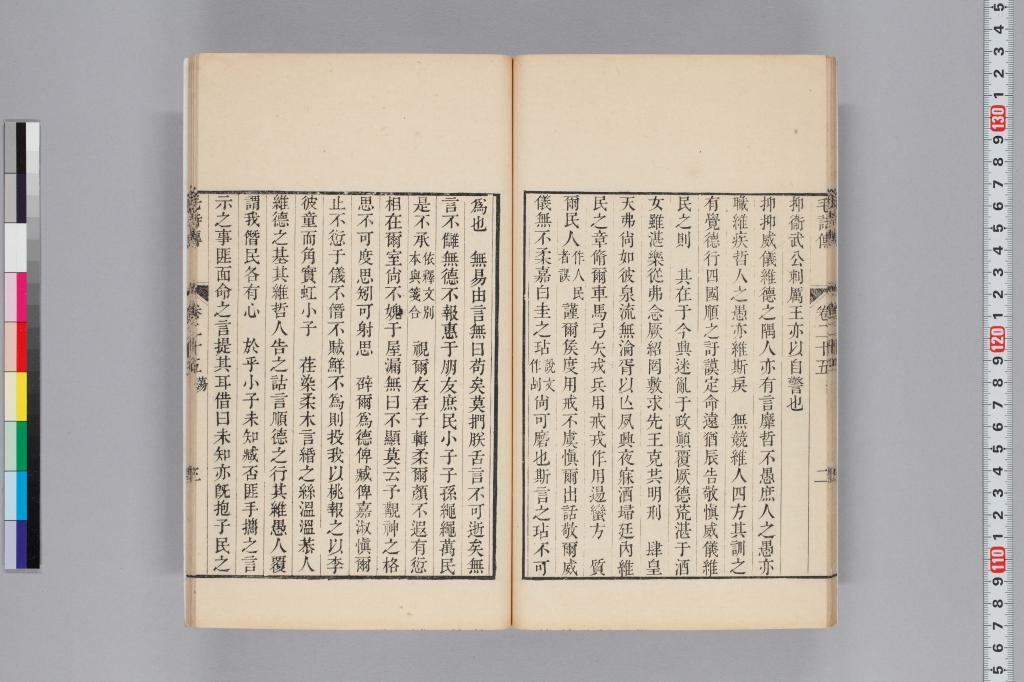 毛詩傳
卷二十五
二
抑衞武公刺厲王亦以自警也
抑抑威儀維德之隅人亦有言靡哲不愚庶人之愚亦
職維疾哲人之愚亦維斯戾　無競維人四方其訓之
有覺德行四國順之訏謨定命遠猶辰告敬愼威儀維
民之則　其在于今興迷亂于政顚覆厥德荒湛于酒
女雖湛樂從弗念厥紹罔敷求先王克共明刑　肆皇
天弗尙如彼泉流無淪胥以亡夙興夜寐洒埽廷內維
民之章脩爾車馬弓矢戎兵用戒戎作用逷蠻方　質
爾民人作人民者誤　謹爾矦度用戒不虞愼爾出話敬爾威
儀無不柔嘉白圭之玷說文作㓠尙可磨也斯言之玷不可
爲也　無易由言無曰苟矣莫捫朕舌言不可逝矣無
言不讎無德不報惠于朋友庶民小子子孫繩繩萬民
是不承依釋文別本與箋合　視爾友君子輯柔爾顏不遐有愆
相在爾室尙不媿于屋漏無曰不顯莫云予覯神之格
思不可度思矧可射思　辟爾爲德俾臧俾嘉淑愼爾
止不愆于儀不僭不賊鮮不爲則投我以桃報之以李
彼童而角實虹小子　荏染柔木言緡之絲溫溫恭人
維德之基其維哲人告之話言順德之行其維愚人覆
謂我僭民各有心　於乎小子未知臧否匪手攜之言
示之事匪面命之言提其耳借曰未知亦旣抱子民之
蕩